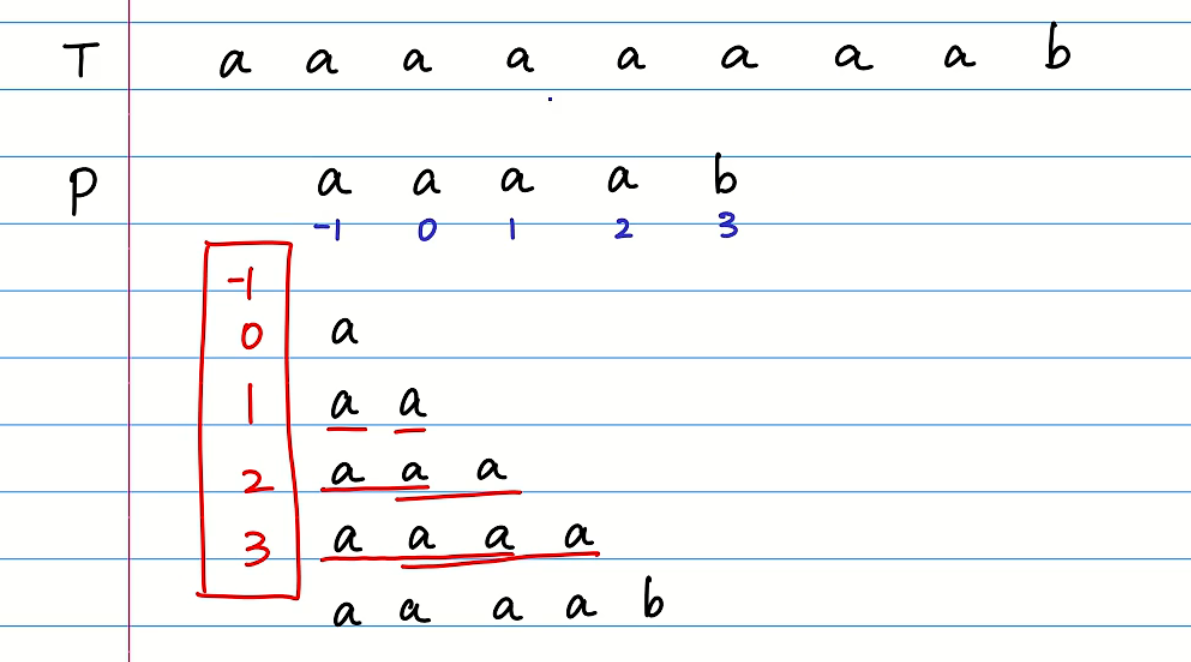 T a a a a a a a a b
P a a a a b
-1 0 1 2 3
-1
0 a
1 a a
2 a a a
3 a a a a
a a a a b